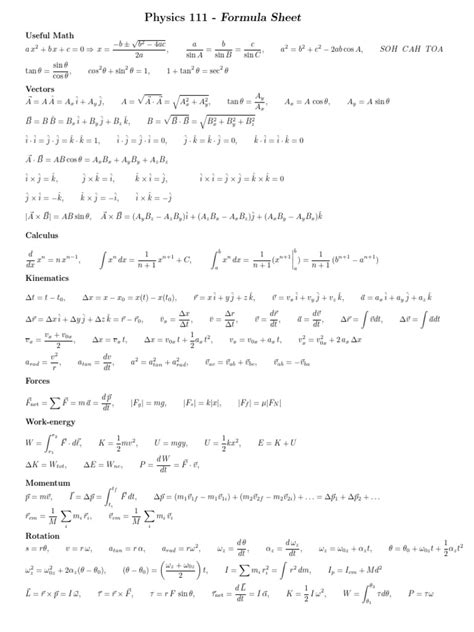 Physics 111 - Formula Sheet
Useful Math
a x² + b x + c = 0 ⇒ x = (−b ± √(b² − 4ac)) / 2a, a / sin A = b / sin B = c / sin C, a² = b² + c² − 2ab cos A, SOH CAH TOA
tan θ = sin θ / cos θ, cos² θ + sin² θ = 1, 1 + tan² θ = sec² θ
Vectors
A⃗ = A Â = Aₓ î + A_y ĵ, A = √(A⃗ · A⃗) = √(Aₓ² + A_y²), tan θ = A_y / Aₓ, Aₓ = A cos θ, A_y = A sin θ
B⃗ = B B̂ = Bₓ î + B_y ĵ + B_z k̂, B = √(B⃗ · B⃗) = √(Bₓ² + B_y² + B_z²)
î · î = ĵ · ĵ = k̂ · k̂ = 1, î · ĵ = ĵ · î = 0, ĵ · k̂ = k̂ · ĵ = 0, k̂ · î = î · k̂ = 0
A⃗ · B⃗ = AB cos θ = AₓBₓ + A_yB_y + A_zB_z
î × ĵ = k̂, ĵ × k̂ = î, k̂ × î = ĵ, î × î = ĵ × ĵ = k̂ × k̂ = 0
ĵ × î = −k̂, k̂ × ĵ = −î, î × k̂ = −ĵ
|A⃗ × B⃗| = AB sin θ, A⃗ × B⃗ = (A_yB_z − A_zB_y)î + (A_zBₓ − AₓB_z)ĵ + (AₓB_y − A_yBₓ)k̂
Calculus
d/dx xⁿ = n xⁿ⁻¹, ∫ xⁿ dx = 1/(n+1) xⁿ⁺¹ + C, ∫ₐᵇ xⁿ dx = 1/(n+1) (xⁿ⁺¹|ₐᵇ) = 1/(n+1) (bⁿ⁺¹ − aⁿ⁺¹)
Kinematics
Δt = t − t₀, Δx = x − x₀ = x(t) − x(t₀), r⃗ = x î + y ĵ + z k̂, v⃗ = vₓ î + v_y ĵ + v_z k̂, a⃗ = aₓ î + a_y ĵ + a_z k̂
Δr⃗ = Δx î + Δy ĵ + Δz k̂ = r⃗ − r⃗₀, vₓ = Δx/Δt, v̄ = Δr⃗/Δt, v⃗ = dr⃗/dt, a⃗ = dv⃗/dt, Δr⃗ = ∫ v⃗dt, Δv⃗ = ∫ a⃗dt
v̄ₓ = (vₓ + v₀ₓ)/2, Δx = v̄ₓ t, Δx = v₀ₓ t + 1/2 aₓ t², vₓ = v₀ₓ + aₓ t, vₓ² = v₀ₓ² + 2 aₓ Δx
a_rad = v²/r, a_tan = dv/dt, a² = a²_tan + a²_rad, v⃗_ac = v⃗_ab + v⃗_bc, v⃗_ab = −v⃗_ba
Forces
F⃗_net = ∑ F⃗ = m a⃗ = dp⃗/dt, |F_g| = mg, |F_s| = k|x|, |F_f| = μ|F_N|
Work-energy
W = ∫_{r₁}^{r₂} F⃗ · dr⃗, K = 1/2 mv², U = mgy, U = 1/2 kx², E = K + U
ΔK = W_tot, ΔE = W_nc, P = dW/dt = F⃗ · v⃗,
Momentum
p⃗ = mv⃗, I⃗ = Δp⃗ = ∫_{tᵢ}^{t_f} F⃗ dt, Δp⃗ = (m₁v⃗₁f − m₁v⃗₁i) + (m₂v⃗₂f − m₂v⃗₂i) + . . . = Δp⃗₁ + Δp⃗₂ + . . .
r⃗_cm = 1/M ∑ᵢ mᵢ r⃗ᵢ, v⃗_cm = 1/M ∑ᵢ mᵢ v⃗ᵢ
Rotation
s = rθ, v = r ω, a_tan = r α, a_rad = rω², ω_z = dθ/dt, α_z = dω_z/dt, ω_z = ω₀z + α_z t, θ = θ₀ + ω₀z t + 1/2 α_z t²
ω_z² = ω₀z² + 2α_z(θ − θ₀), (θ − θ₀) = ((ω_z + ω₀z)/2) t, I = ∑ᵢ mᵢ rᵢ² = ∫ r² dm, I_p = I_cm + Md²
L⃗ = r⃗ × p⃗ = I ω⃗, τ⃗ = r⃗ × F⃗, τ = r F sin θ, τ⃗_net = dL⃗/dt = I α⃗, K = 1/2 I ω², W = ∫_{θ₁}^{θ₂} τdθ, P = τω